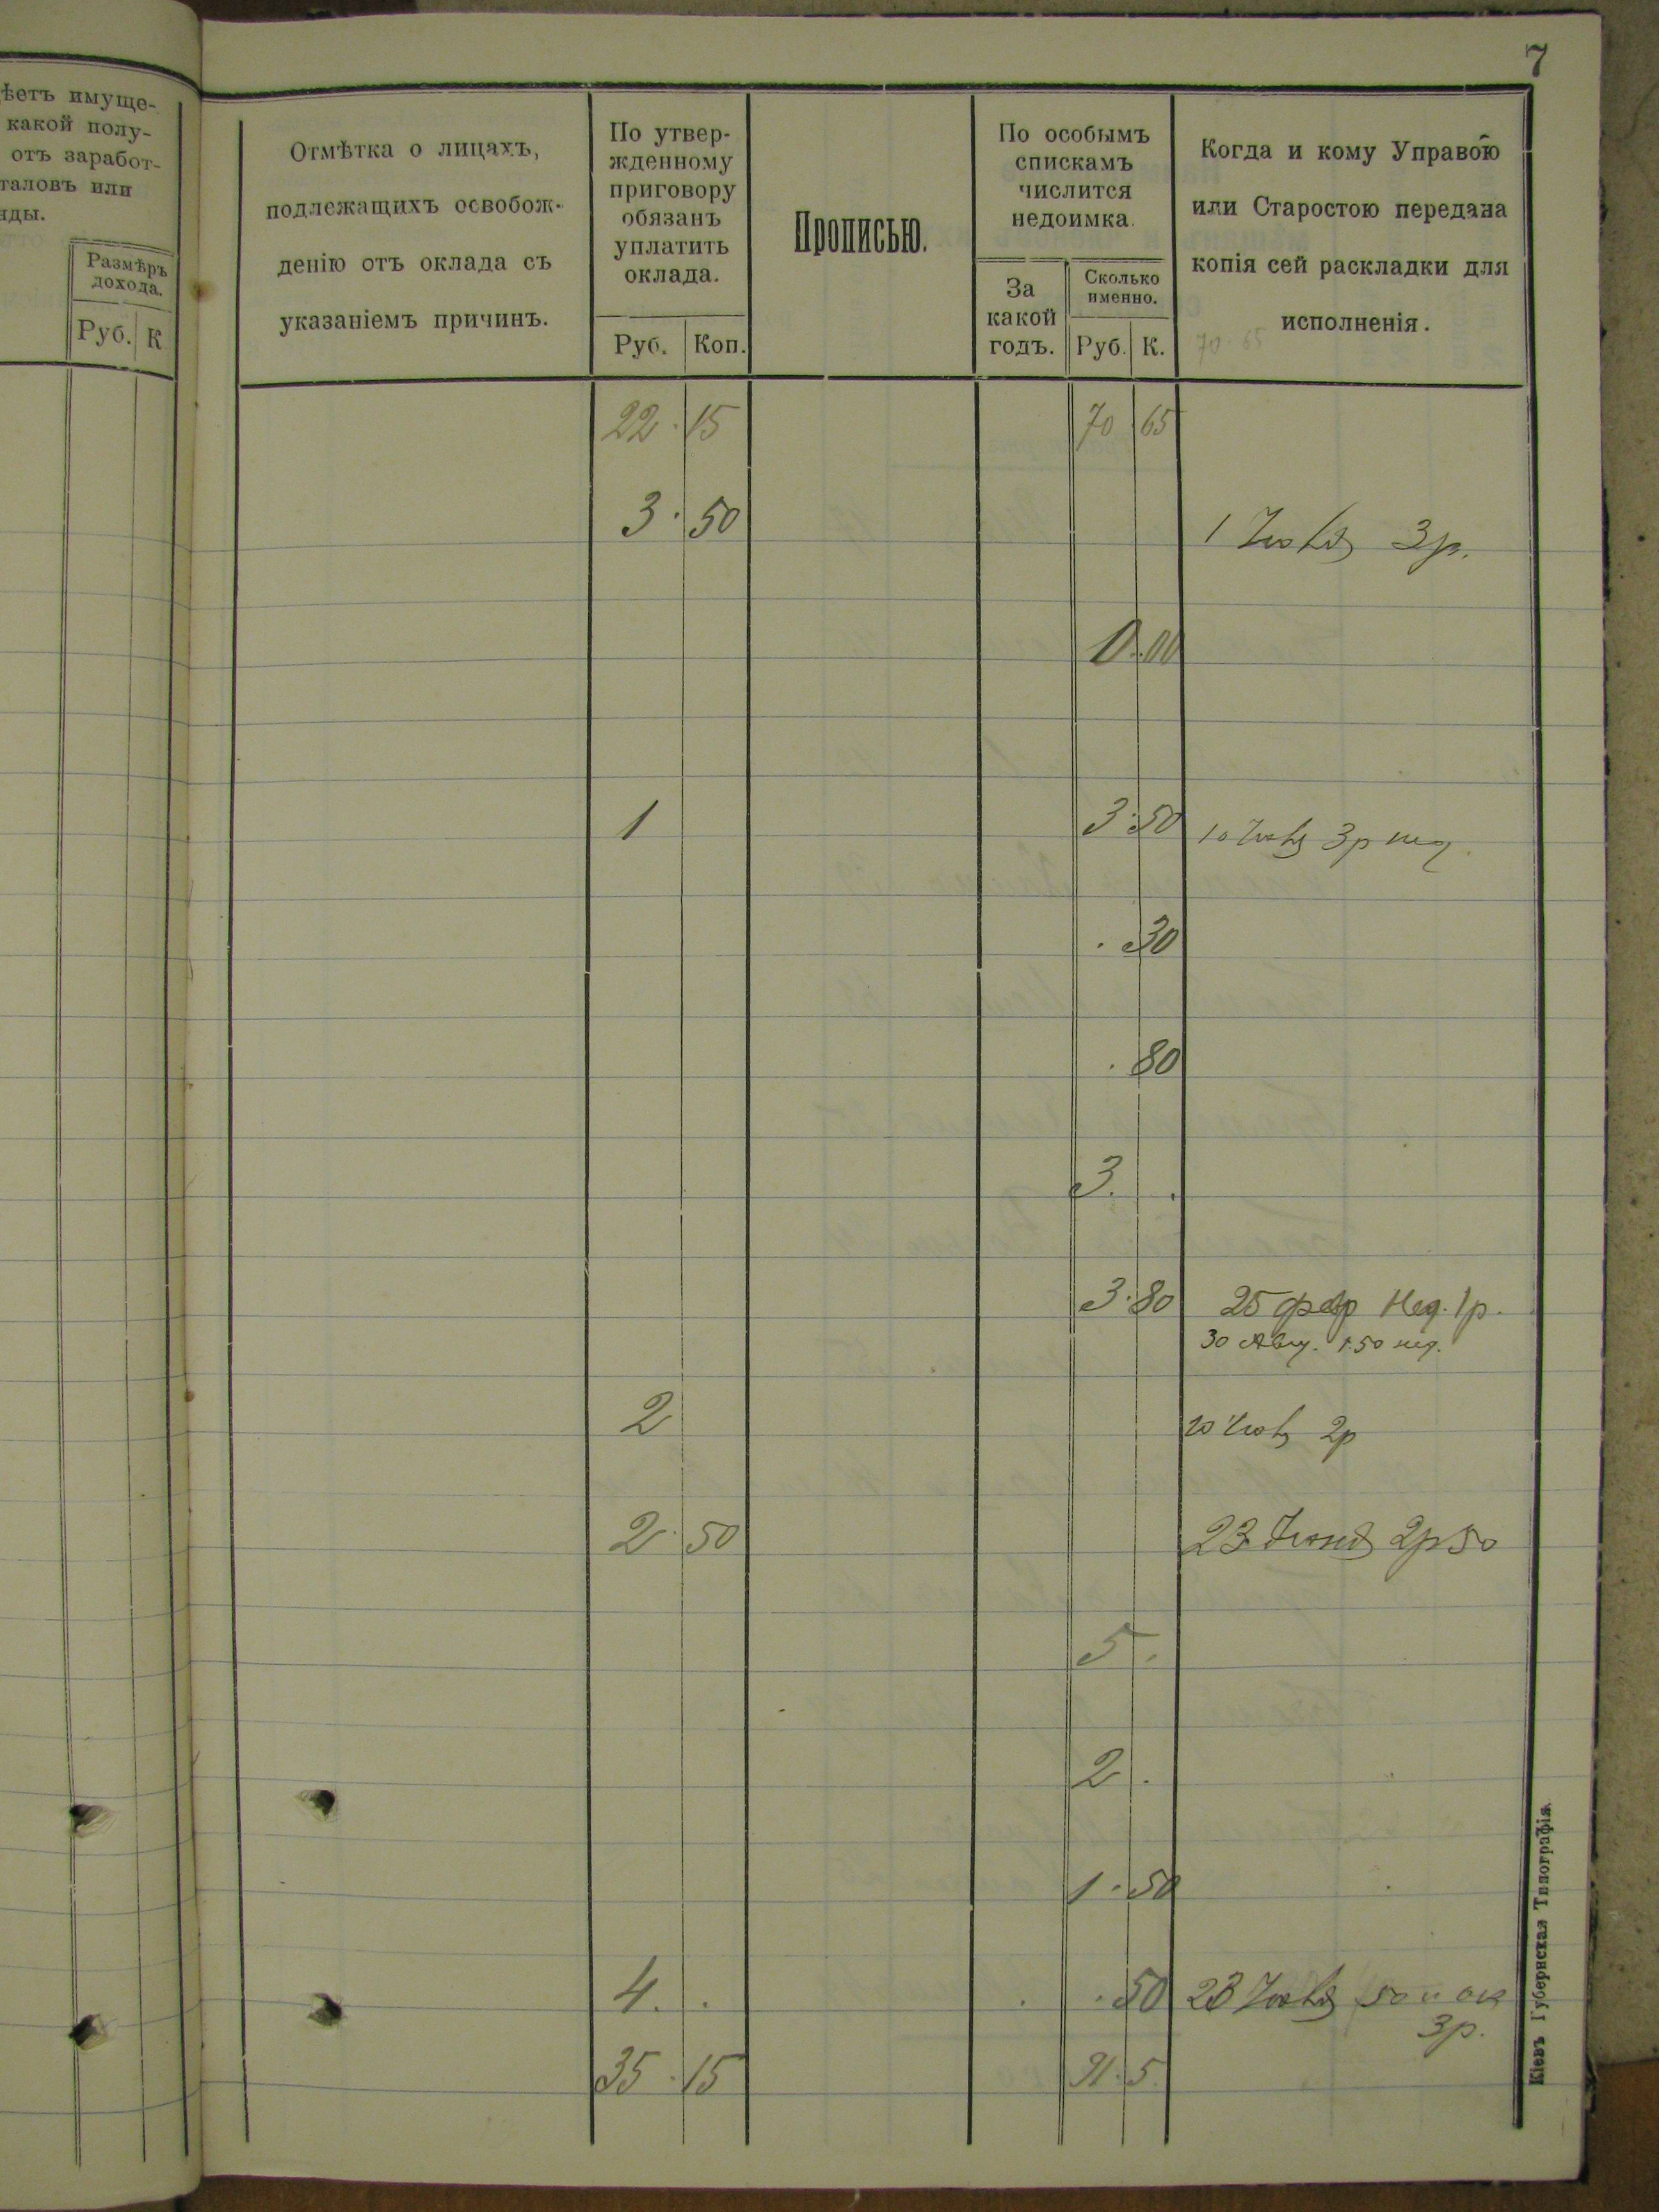 7
ѣетъ имуще-
какой полу-
отъ заработ-
таловъ или
нды.
Размѣръ
дохода.
Руб. К
Отмѣтка о лицахъ,
подлежащихъ освобож-
денію отъ оклада съ
указаніемъ причинъ.
По утвер-
жденному
приговору
обязанъ
уплатить
оклада.
Руб. Коп.
Прописью.
По особымъ
спискамъ
числится
недоимка.
За
какой
годъ.
Сколько
именно.
Руб. К.
Когда и кому Управою
или Старостою передана
копія сей раскладки для
исполненія.
70 65
22 . 15 70 . 65
3 . 50
1 3 р.
0 . 00
1 3 . 50
10 3 р
. 30
. 80
3 . .
3 . 80 25 фвр Нед. 1 р.
30 Авг. 1.50 нед.
2
20 2 р
2 . 50 23 2 р 50
5 .
2 .
1 . 50
4 . . . . 50 23 50
3 р.
35 . 15 91 . 5.
Кіевъ Губернская Типографія.